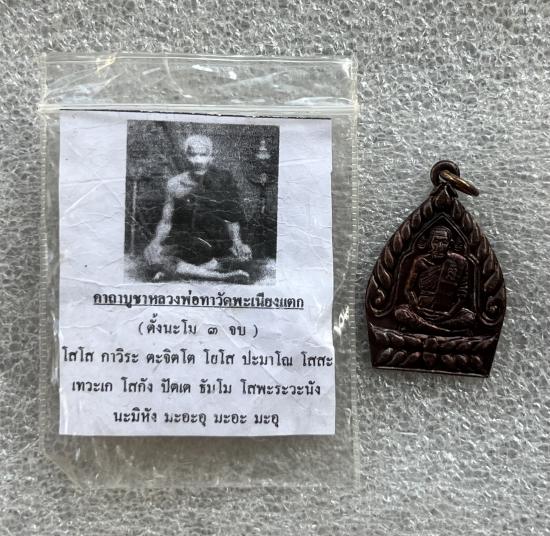 คาถาบูชาหลวงพ่อทาวัดพะเนียงแตก
(ตั้งนะโม ๓ จบ)
โสโส กาวิระ ตะจิตโต โยโส ปะมาโณ โสสะ
เทวะเก โสกัง ปัตเต ธัมโม โสพะระวะนัง
นะมิหัง มะอะอุ มะอะ มะอุ